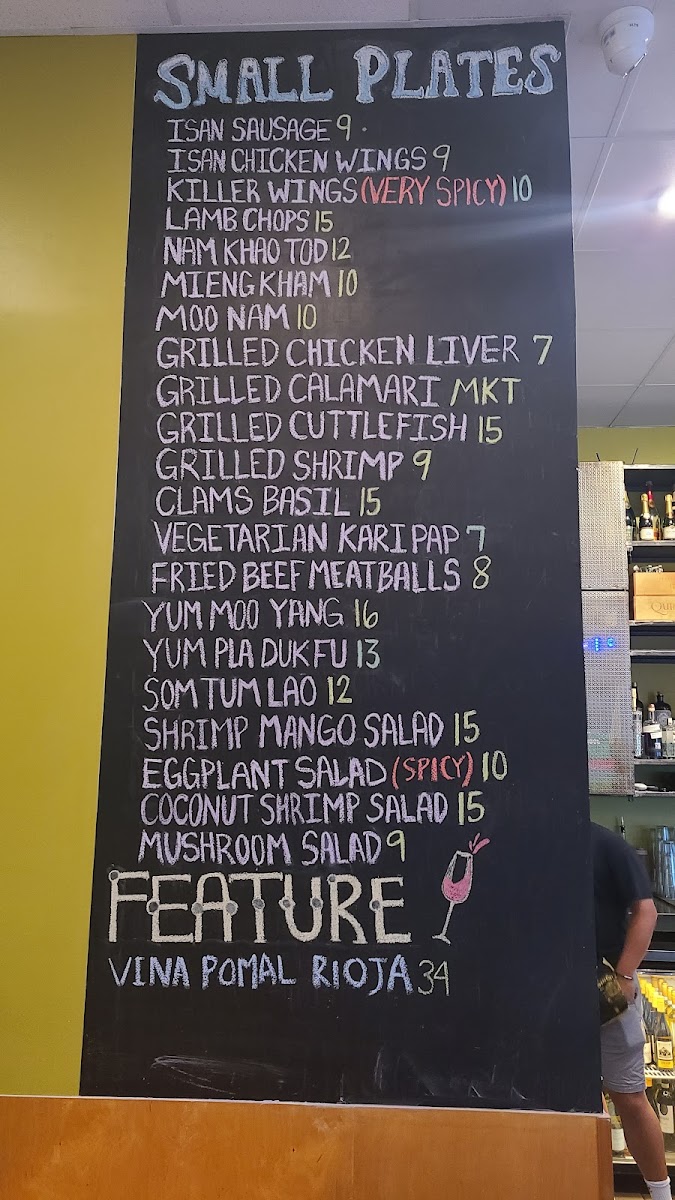 SMALL PLATES
ISAN SAUSAGE 9
ISAN CHICKEN WINGS 9
KILLER WINGS (VERY SPICY) 10
LAMB CHOPS 15
NAM KHAO TOD 12
MIENG KHAM 10
MOO NAM 10
GRILLED CHICKEN LIVER 7
GRILLED CALAMARI MKT
GRILLED CUTTLEFISH 15
GRILLED SHRIMP 9
CLAMS BASIL 15
VEGETARIAN KARI PAP 7
FRIED BEEF MEATBALLS 8
YUM MOO YANG 16
YUM PLA DUK FU 13
SOM TUM LAO 12
SHRIMP MANGO SALAD 15
EGGPLANT SALAD (SPICY) 10
COCONUT SHRIMP SALAD 15
MUSHROOM SALAD 9
FEATURE
VINA POMAL RIOJA 34